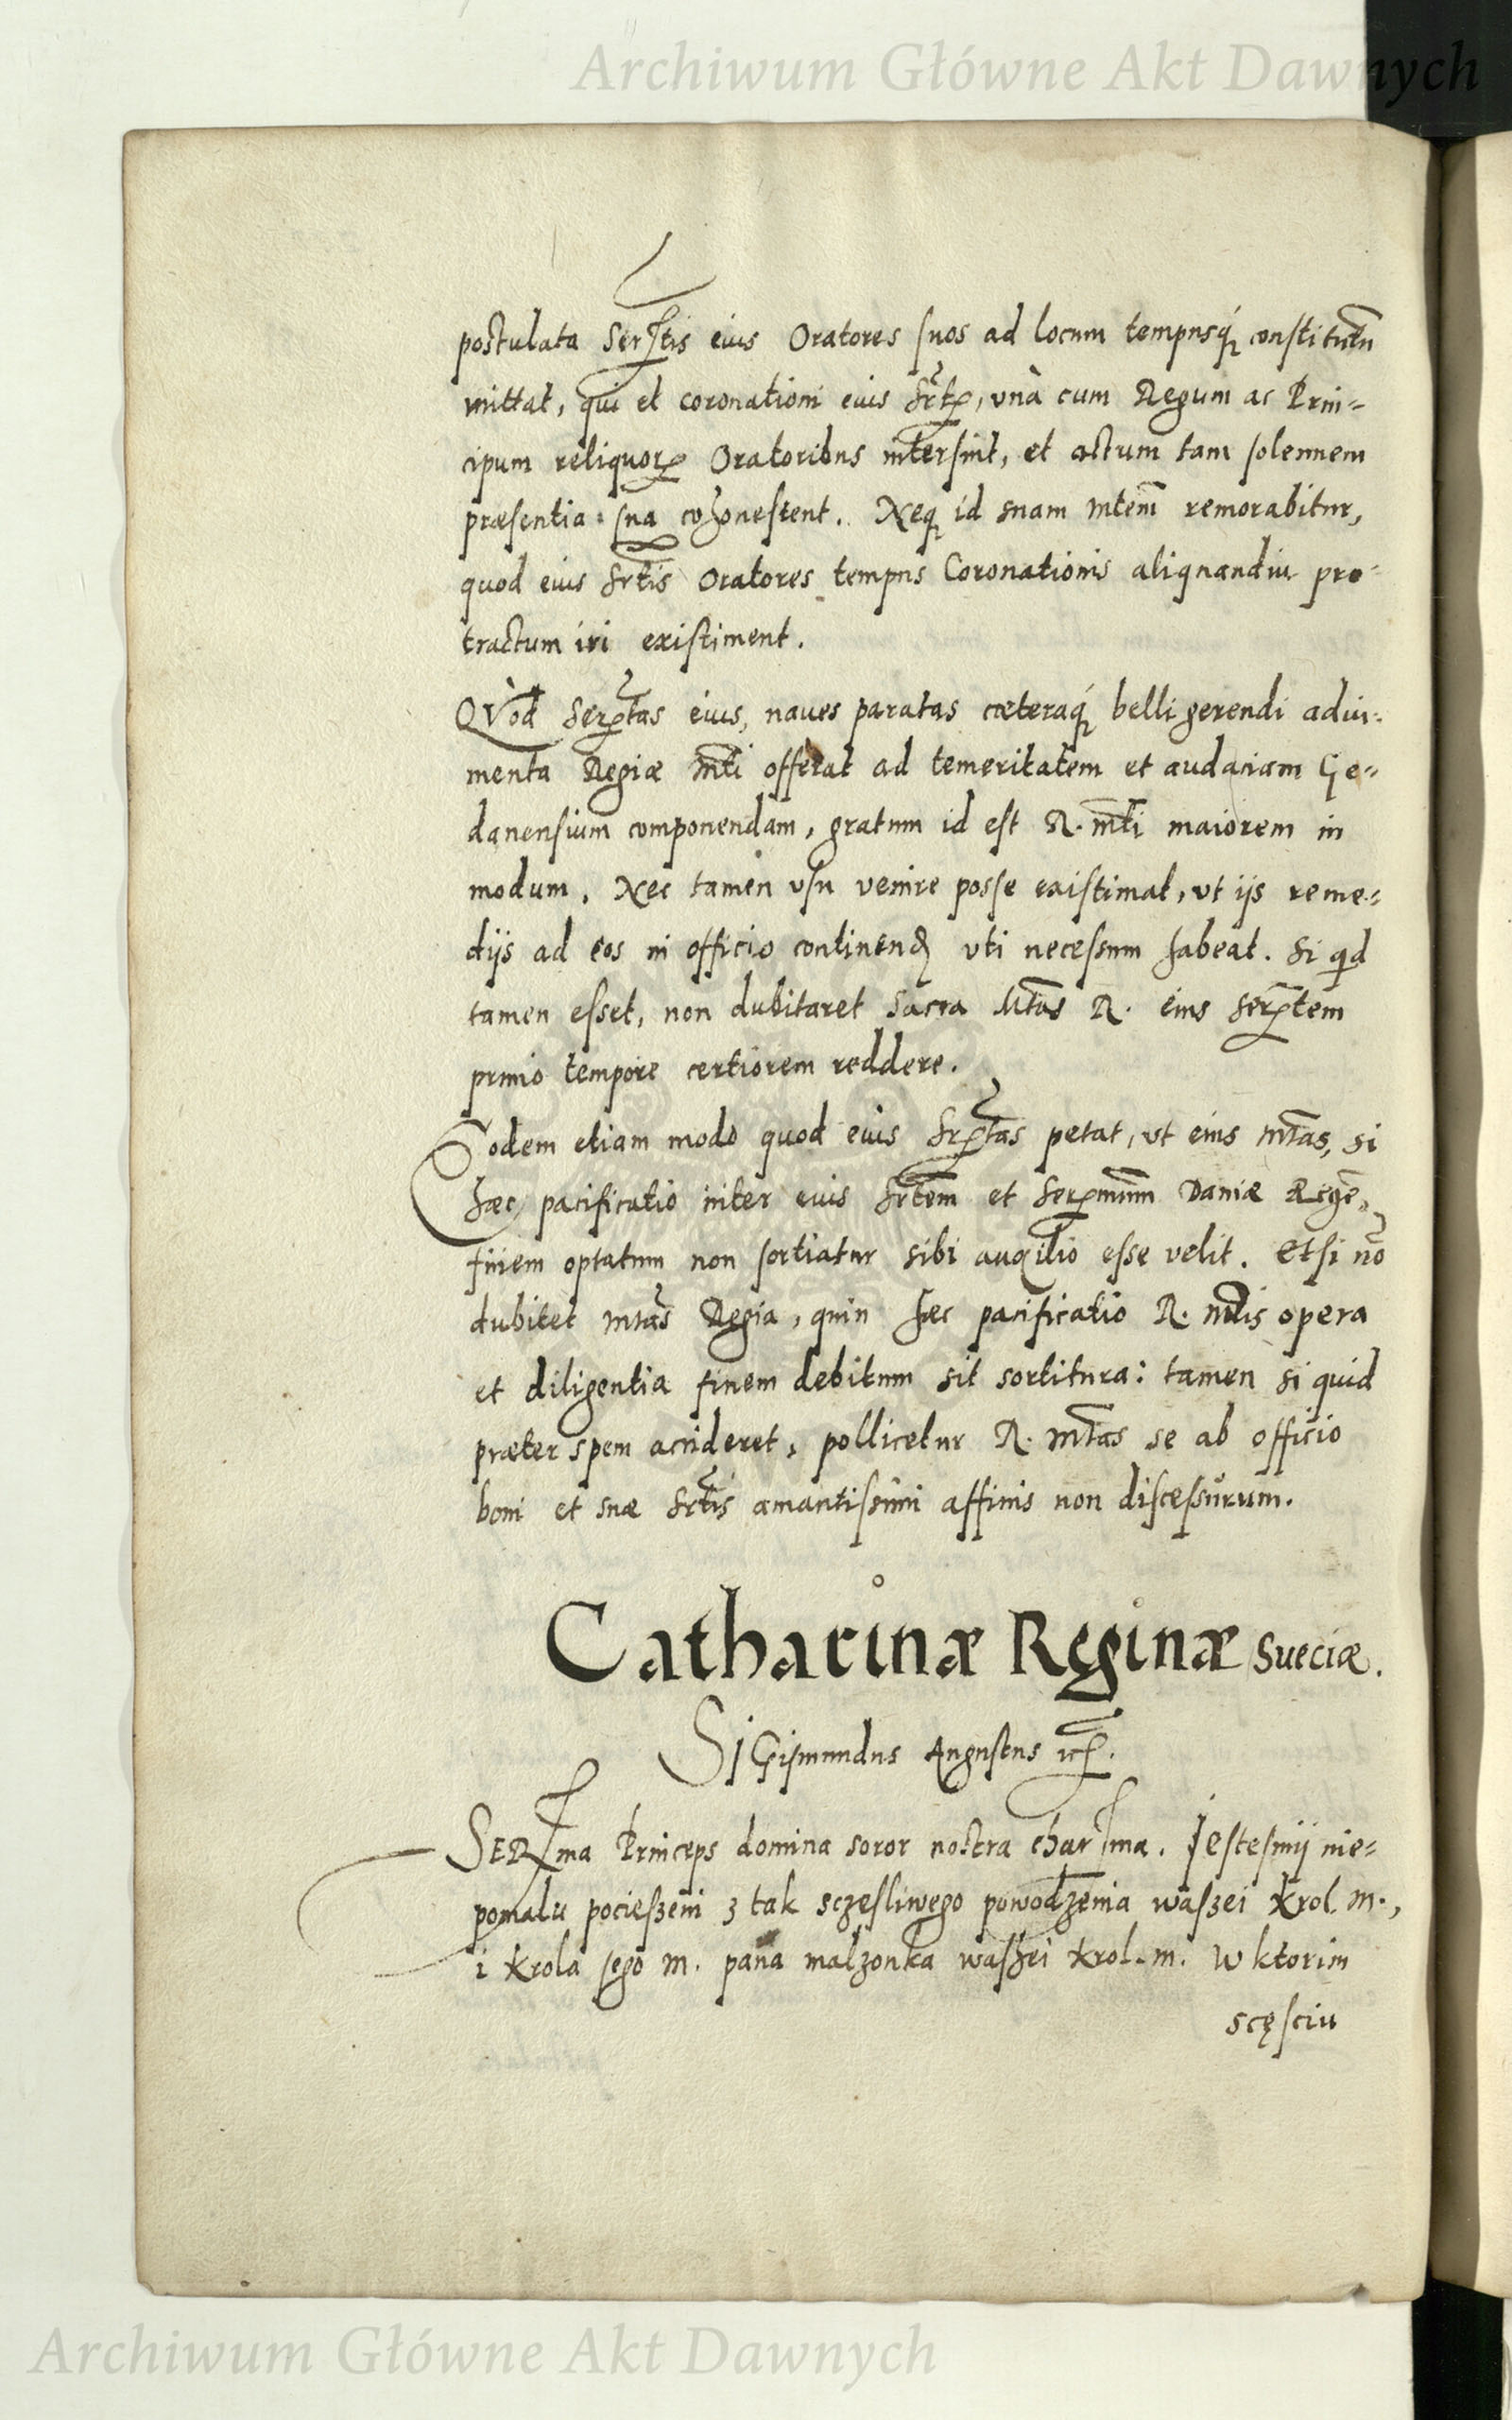 Archiwum Główne Akt Dawnych
postulata Sermtis eius Oratores suos ad locum tempusq́; constitutū
mittat, qui et coronationi eius Srti, vnà cum Regum ac Prin-
cipum reliquorꝝ Oratoribus intersint, et actum tam solennem
præsentia sua cohonestent. Neq; id suam Mtem̄ remorabitur,
quod eius Srtis Oratores tempus Coronationis aliquandiu pro-
tractum iri existiment.
QVòd Sermtas eius, naues paratas cæteraq́; belli gerendi adiu-
menta Regiæ Mti offerat ad temeritatem et audaciam Ge-
danensium componendam, gratum id est R. Mti maiorem in
modum. Nec tamen vsu venire posse existimat, vt ijs reme-
dijs ad eos in officio continendos vti necessum habeat. Si qid
tamen esset, non dubitaret Sacra Mtas R. eius Sermtem
primo tempore certiorem reddere.
Eodem etiam modo quod eius Srmtas petat, vt eius Mtas, si
hæc pacificatio inter euis Srtem et Sermum Daniæ Regē
finem optatum non sortiatur sibi auxilio esse velit. Etsi nō
dubitet Mtas Regia, quin hæc pacificatio R. Mtis opera
et diligentia finem debitum sit sortitura: tamen si quid
præter spem accideret, pollicetur R. Mtas se ab officio
boni et suæ Srtis amantissimi affinis non discessurum.
Catharinæ Reginæ Sueciæ.
SiGismundus Augustus rc.
SERma Princeps domina soror nostra charma. Jestesmÿ nie-
pomalu pocieszeni z tak sczesliwego powodzenia waszei Krol. M.,
i Krola jego M. pana malzonka waszei Krol. M. W ktorim
scęsciu
Archiwum Główne Akt Dawnych